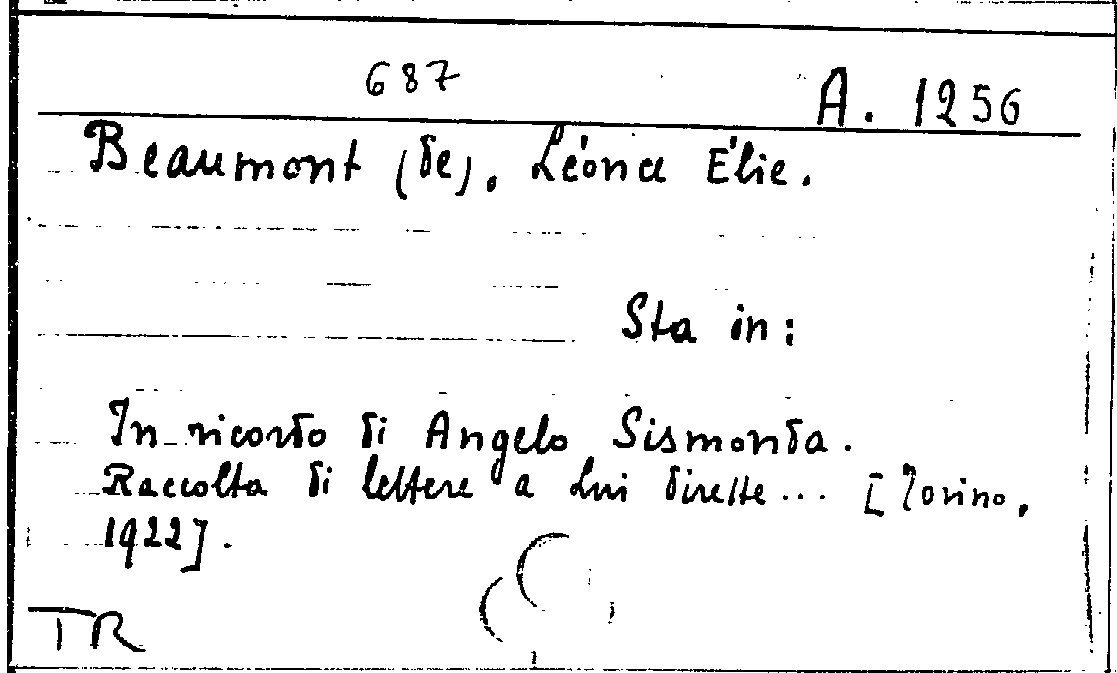 687
A. 1256
Beaumont (de), Léonce Élie.
Sta in:
In ricordo di Angelo Sismonda.
Raccolta di lettere a Lui dirette... [Torino,
1922].
TR